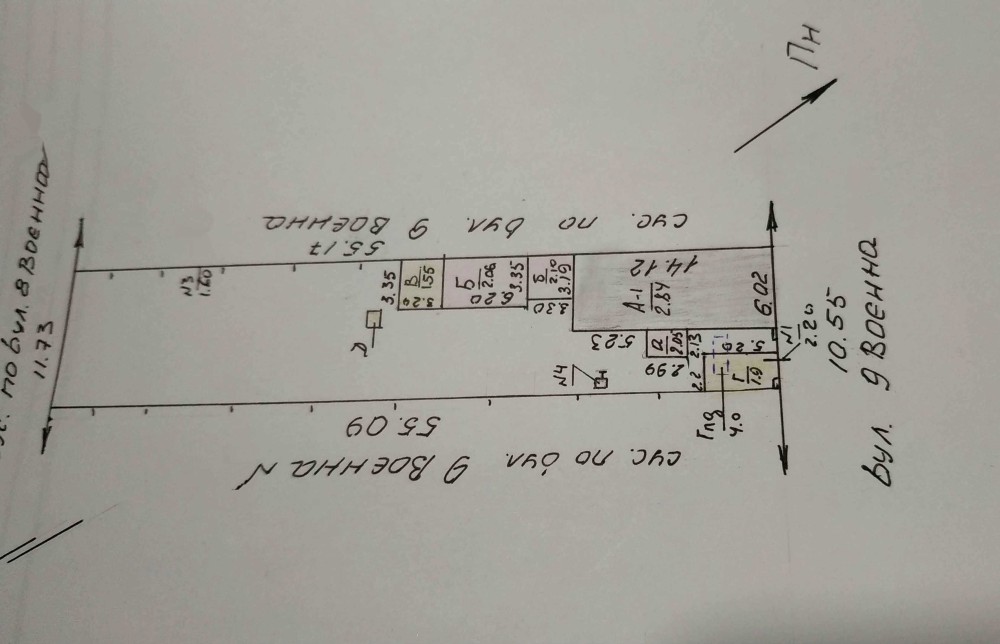 по вул. 8 Военна
11.73
Пн
сус. по вул. 9 Военна
55.17
N3
1.60
3.35
В
1.55
5.20
Б
2.06
6.20
3.35
б
2.10
3.19
3.30
Д
14.12
А-1
2.84
6.02
5.23
а
2.05
2.13
2.99
N4
2.2
Г
1.9
Гпд
4.0
N1
2.20
55.09
сус. по вул. 9 Военна N
10.55
вул. 9 Военна